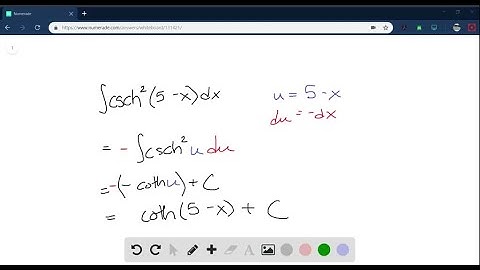 Numerade
https://www.numerade.com/answers/whiteboard/131421/
1
∫csch²(5-x)dx
u = 5-x
du = -dx
= -∫csch²u du
= -(-coth u) + C
= coth(5-x) + C